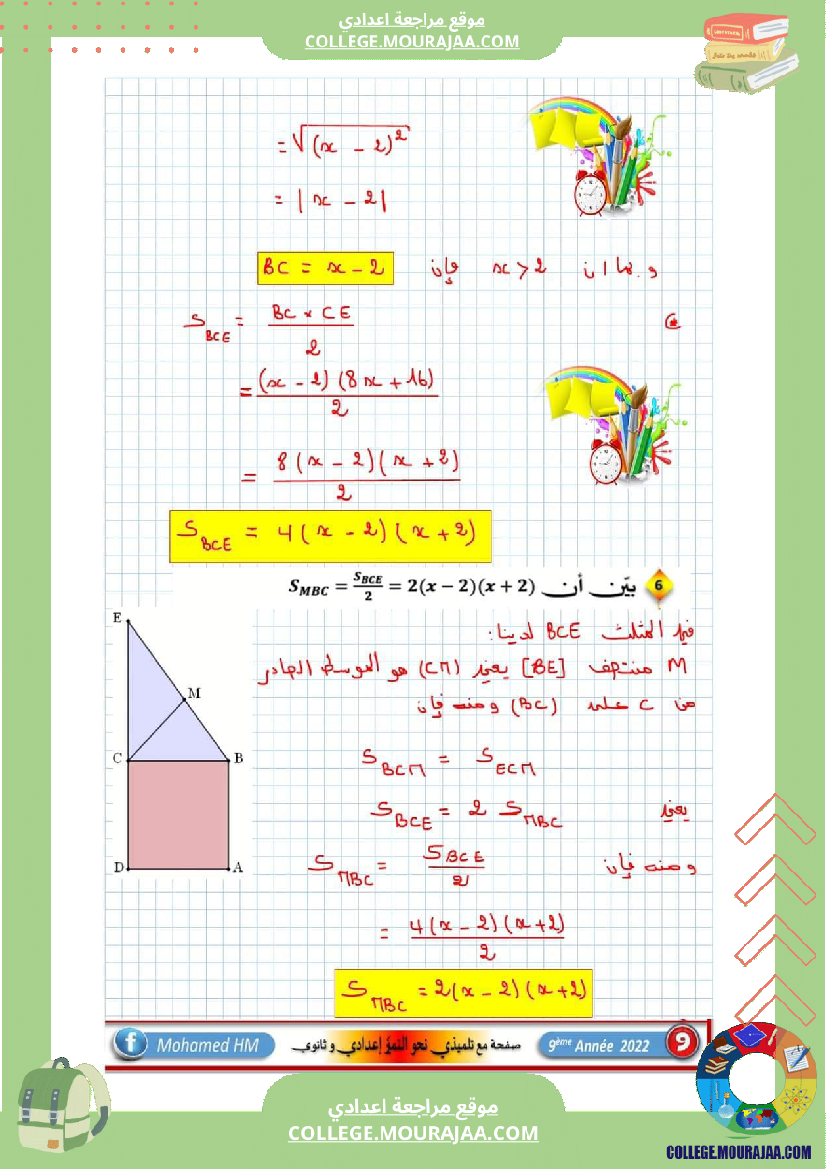 موقع مراجعة اعدادي
COLLEGE.MOURAJAA.COM
= √(x - 2)²
= |x - 2|
و بما ان x > 2 فإن BC = x - 2
S_BCE = (BC × CE)/2
= (x - 2)(8x + 16)/2
= 8(x - 2)(x + 2)/2
S_BCE = 4(x - 2)(x + 2)
6 بيّن أن S_MBC = S_BCE/2 = 2(x - 2)(x + 2)
في المثلث BCE لدينا:
M منتصف [BE] يعني (CM) هو الموسط الصادر
من C على (BC) ومنه فإن
S_BCM = S_ECM
يعني S_BCE = 2 S_MBC
ومنه فإن S_MBC = S_BCE/2
= 4(x - 2)(x + 2)/2
S_MBC = 2(x - 2)(x + 2)
E
M
C
B
D
A
f Mohamed HM
صفحة مع تلميذي نحو التميز إعدادي و ثانوي
9ème Année 2022
9
موقع مراجعة اعدادي
COLLEGE.MOURAJAA.COM
COLLEGE.MOURAJAA.COM